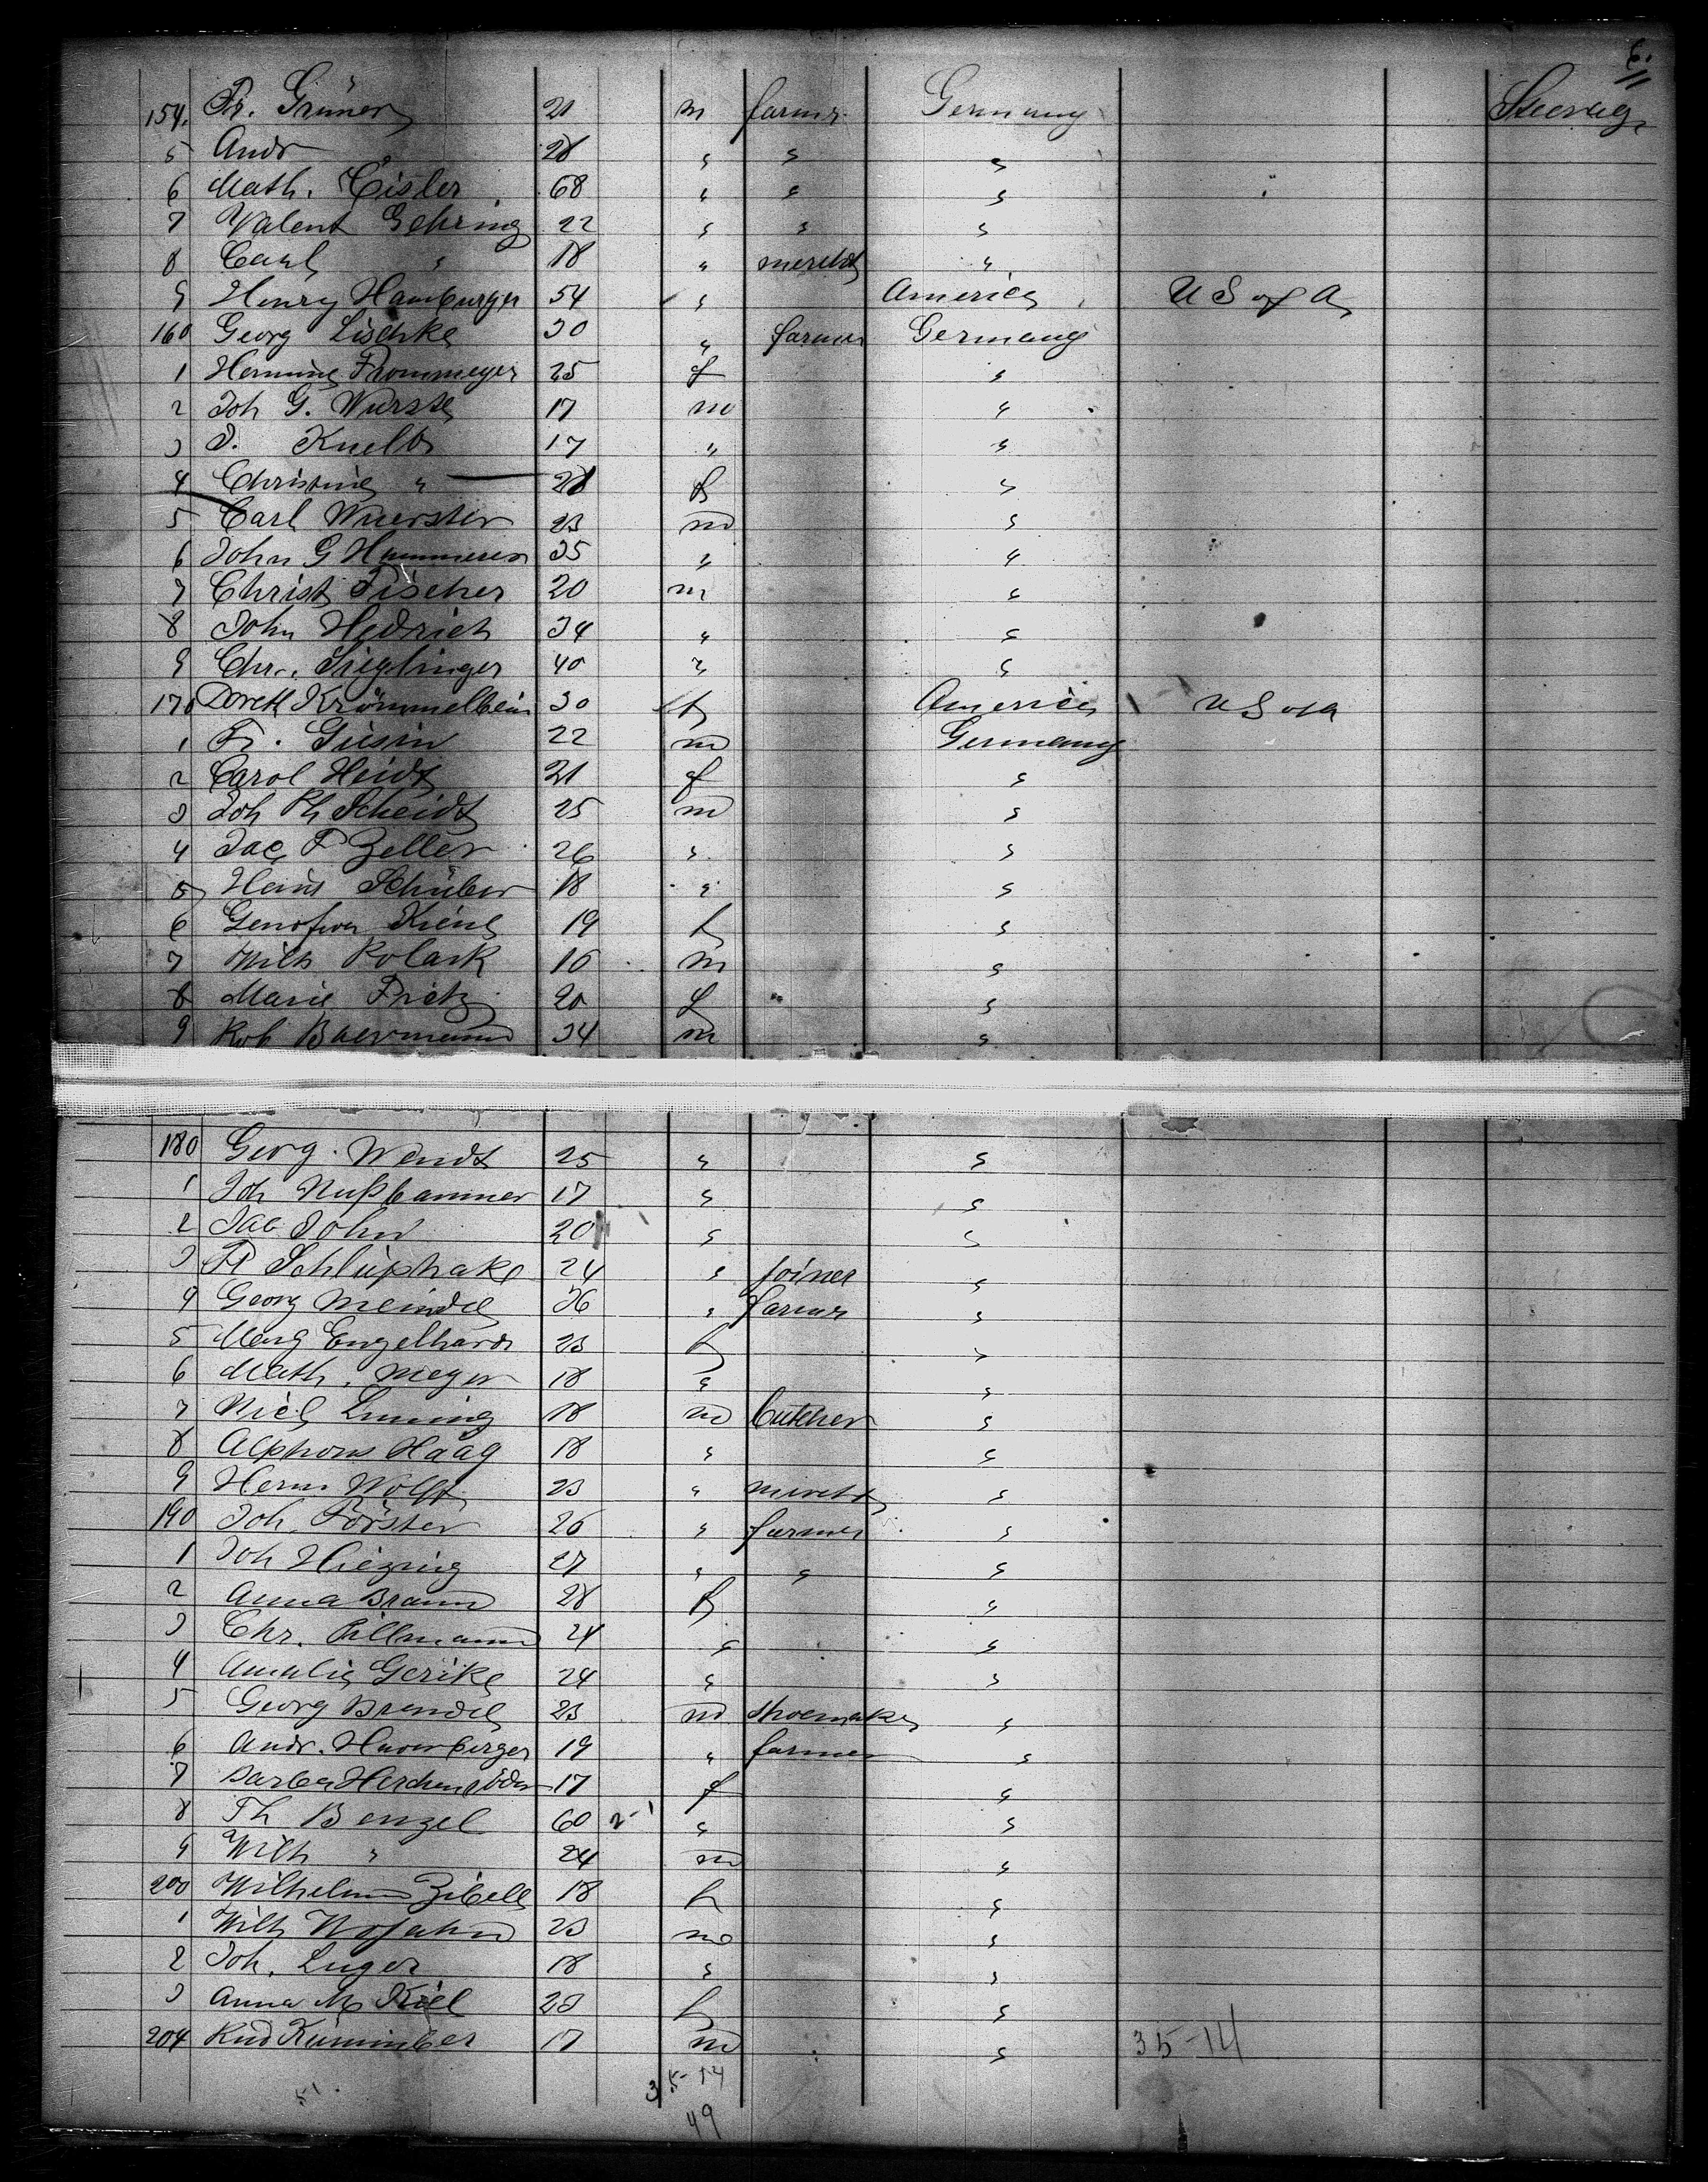 6.
154. Fr. Grüner 21 m farmer Germany Steerage
5 Andr " 28 " " "
6 Math. Eisler 68 " " "
7 Valent Gehring 22 " " "
8 Carl " 18 " mercht "
9 Henry Hamburger 54 " America U S of A
160 Georg Lischke 30 " farmer Germany
1 Hermine Frommeyer 25 f "
2 Joh G. Wurste 17 m "
3 J. 17 " "
4 Christine " 28 f "
5 Carl Wuerster 23 m "
6 John G 35 " "
7 Christ Fischer 20 m "
8 John Hedrich 34 " "
9 Chr. Sieglinger 40 " "
170 Doreth Krömmelbein 30 f America U S of A
1 Fr. 22 m Germany
2 Carol Heidt 21 f "
3 Joh Ph Scheidt 25 m "
4 Jac F Zeller 26 " "
5 Hans Schuber 18 " "
6 Genofeva Kiene 19 f "
7 Wilh Polack 16 m "
8 Marie Fritz 20 f "
9 Rob Baermann 34 m "
180 Georg. Wendt 25 " "
1 Joh Nußbaumer 17 " "
2 Jac John 20 " "
3 Fr Schlüphake 24 " joiner "
4 Georg Meindel 36 " farmer "
5 Marg Engelhardt 23 f "
6 Math. Meyer 18 " "
7 Nicl 18 m butcher "
8 Alphons Haag 18 " "
9 Herm Wolff 23 " mercht "
190 Joh. Förster 26 " farmer "
1 Joh 27 " " "
2 Anna Braun 28 f "
3 Chr. Pillmann 24 " "
4 Amalie Gerike 24 " "
5 Georg Brendel 23 m shoemaker "
6 Andr. 19 " farmer "
7 Barba 17 f "
8 Th Benzel 60 2-1 " "
9 Wilh " 24 m "
200 Wilhelm Zibell 18 f "
1 Wilh Wojahn 23 m "
2 Joh. Luger 18 " "
3 Anna M Kiel 28 f "
204 Rud 17 m " 35-14
51 35-14
49